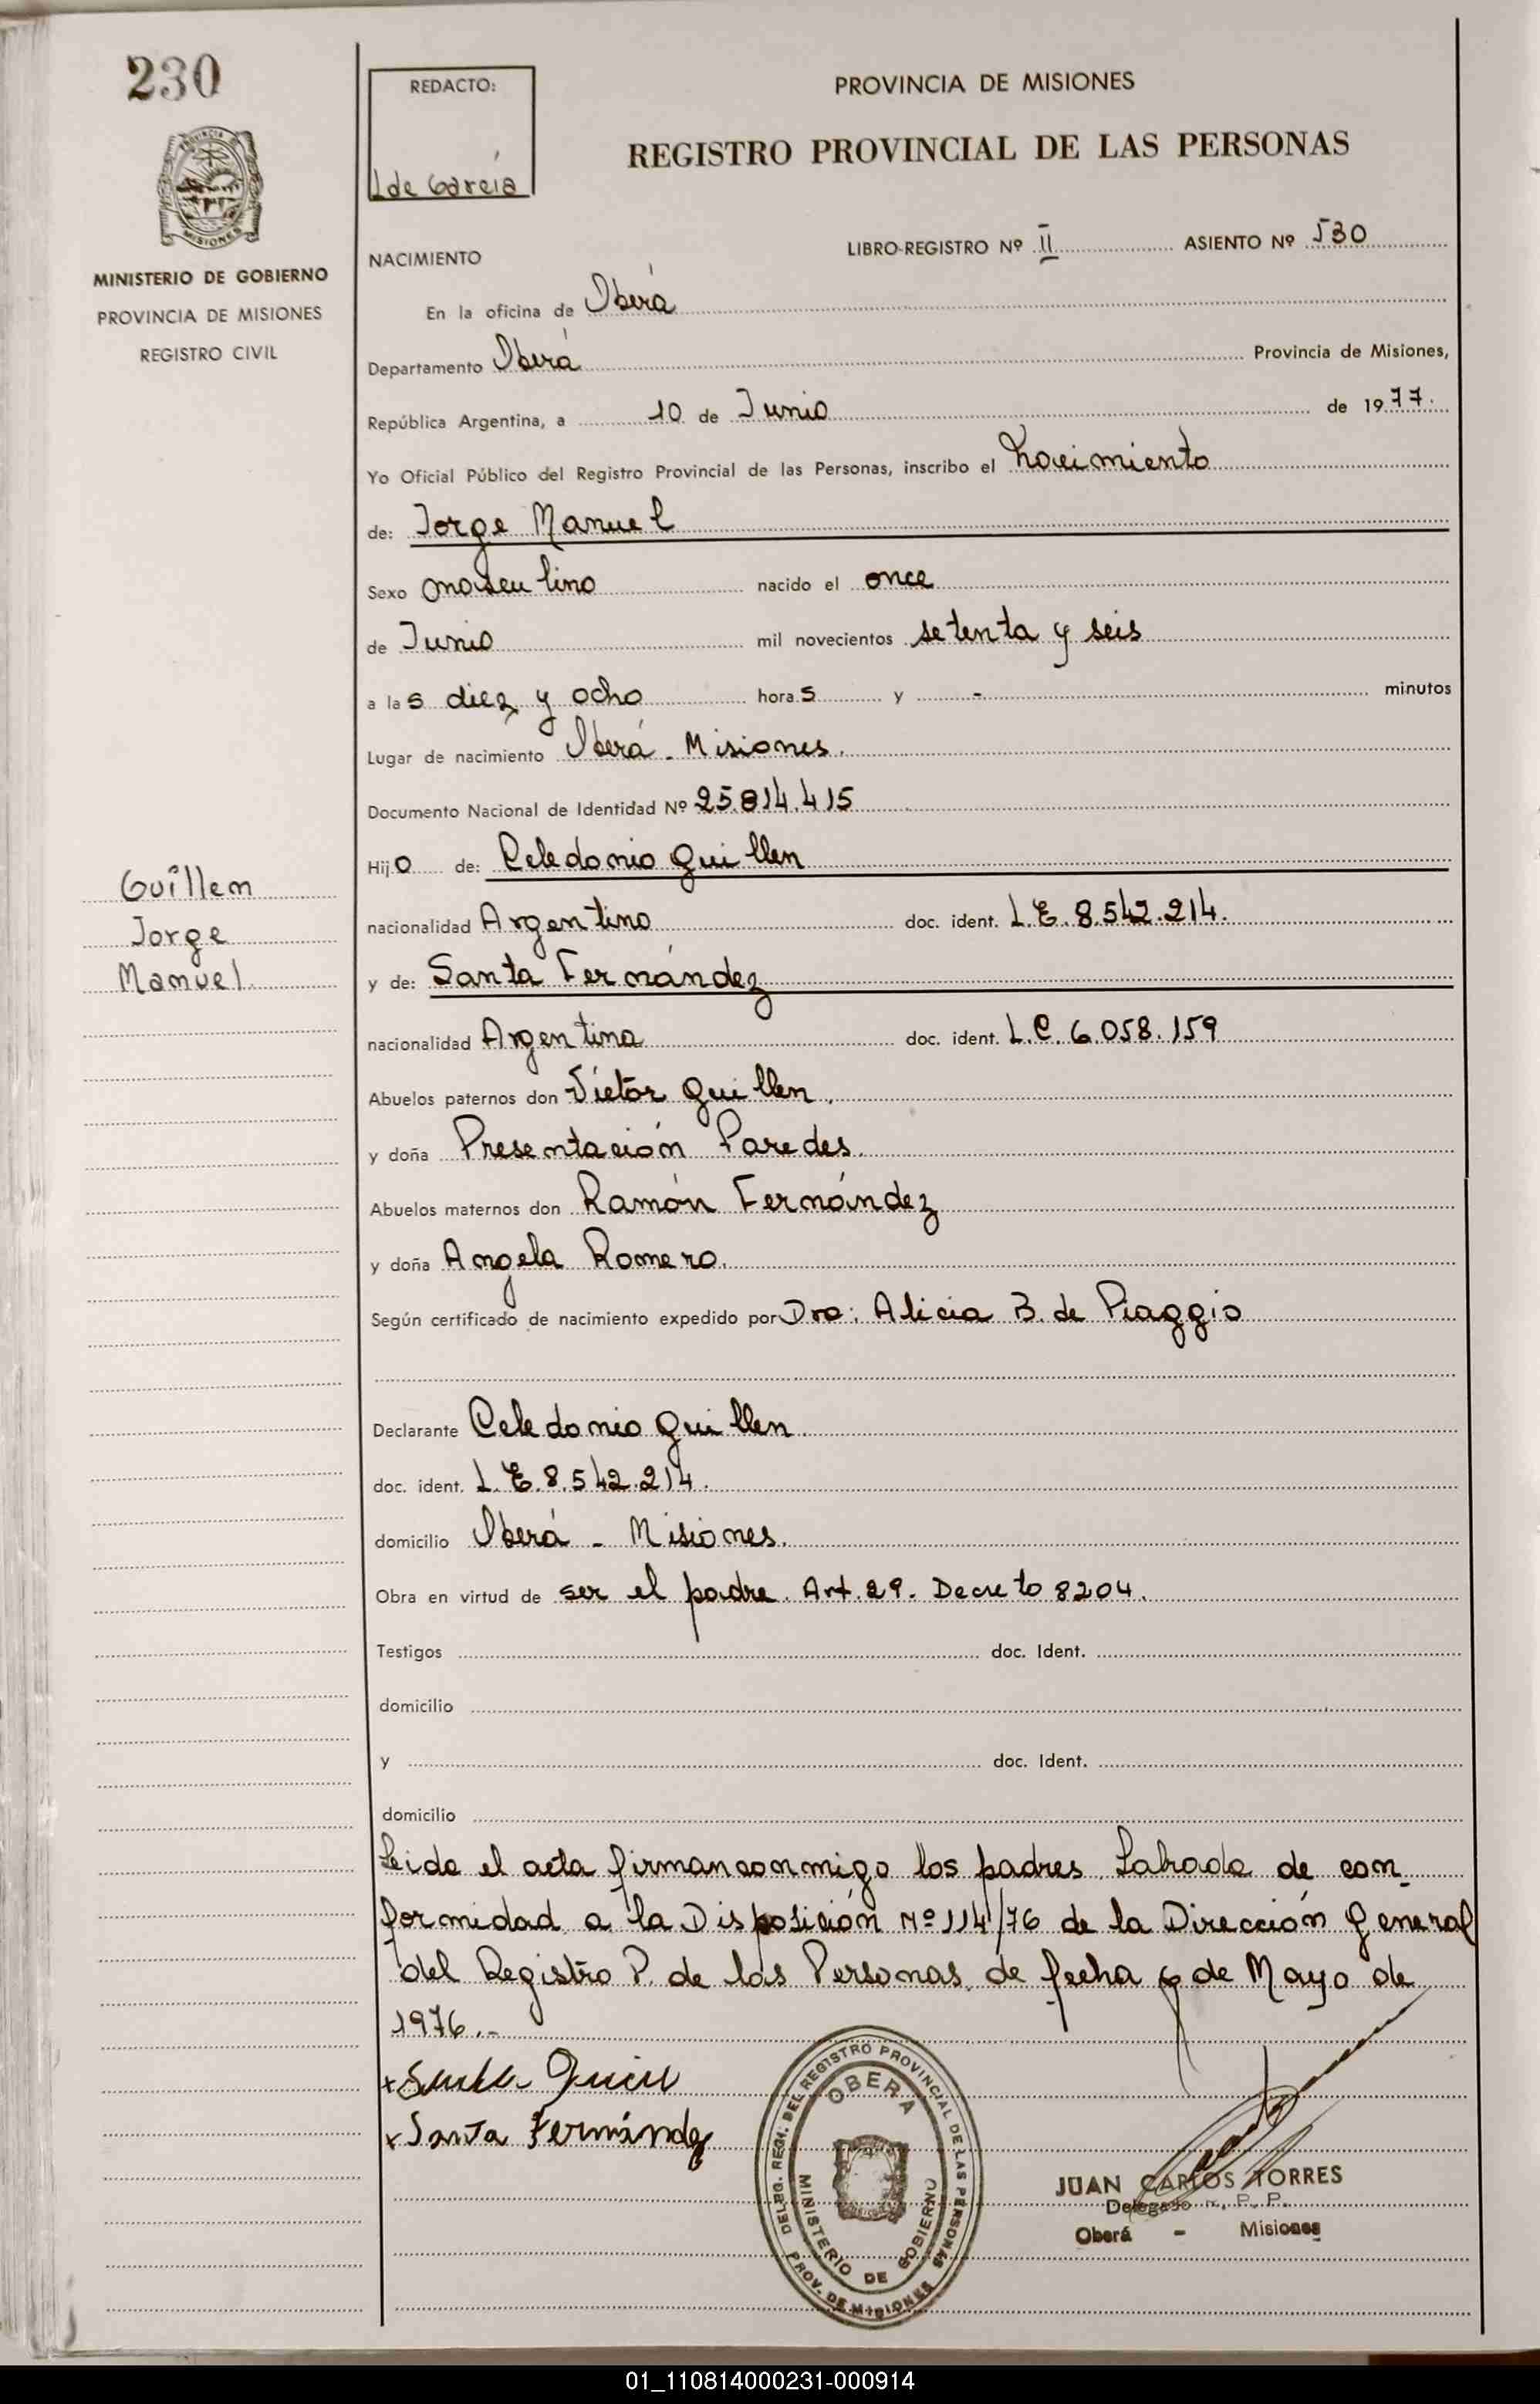 230
REDACTO:
L de García
PROVINCIA DE MISIONES
REGISTRO PROVINCIAL DE LAS PERSONAS
PROVINCIA
MISIONES
MINISTERIO DE GOBIERNO
PROVINCIA DE MISIONES
REGISTRO CIVIL
NACIMIENTO LIBRO-REGISTRO Nº II ASIENTO Nº 530
En la oficina de Oberá
Departamento Oberá Provincia de Misiones,
República Argentina, a 10 de Junio de 1977.
Yo Oficial Público del Registro Provincial de las Personas, inscribo el nacimiento
de: Jorge Manuel
Sexo masculino nacido el once
de Junio mil novecientos setenta y seis
a las diez y ocho horas y - minutos
Lugar de nacimiento Oberá - Misiones.
Documento Nacional de Identidad Nº 25.814.415
Hijo de: Celedonio Guillen
Guillem
Jorge
Manuel.
nacionalidad Argentino doc. ident. L.E. 8.542.214.
y de: Santa Fernández
nacionalidad Argentina doc. ident. L.C. 6.058.159
Abuelos paternos don Víctor Guillen.
y doña Presentación Paredes.
Abuelos maternos don Ramón Fernández
y doña Angela Romero.
Según certificado de nacimiento expedido por Dra: Alicia B. de Piaggio
Declarante Celedonio Guillen.
doc. ident. L.E. 8.542.214.
domicilio Oberá - Misiones.
Obra en virtud de ser el padre. Art. 29. Decreto 8204.
Testigos doc. Ident.
domicilio
y doc. Ident.
domicilio
Leida el acta firman conmigo los padres. Labrada de con-
formidad a la Disposición Nº 114/76 de la Dirección General
del Registro P. de las Personas de fecha 6 de Mayo de
1976.-
x Santa Fernández
DELEG. REGI. DEL REGISTRO PROVINCIAL DE LAS PERSONAS
OBERA
MINISTERIO DE GOBIERNO
PROV. DE MISIONES
JUAN CARLOS TORRES
Delegado R. P. P.
Oberá - Misiones
01_110814000231-000914